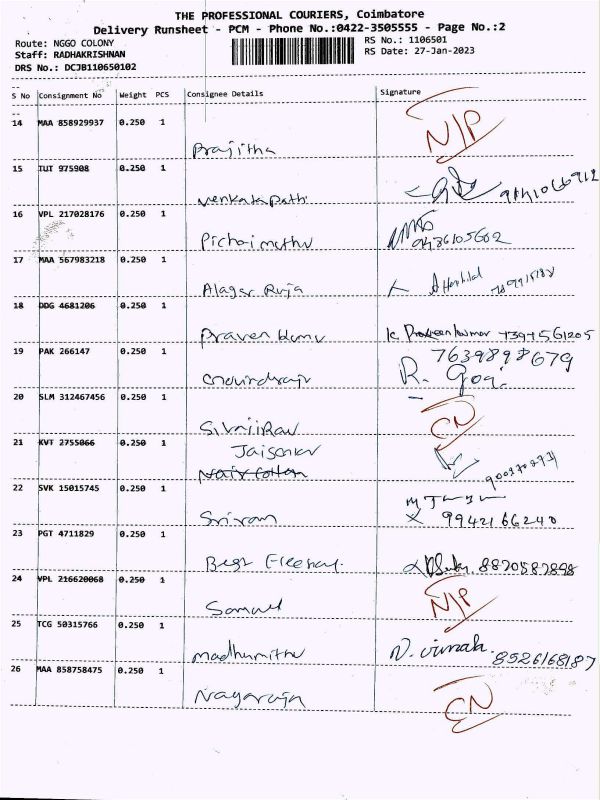 THE PROFESSIONAL COURIERS, Coimbatore
Delivery Runsheet - PCM - Phone No.:0422-3505555 - Page No.:2
Route: NGGO COLONY RS No.: 1106501
Staff: RADHAKRISHNAN RS Date: 27-Jan-2023
DRS No.: DCJB110650102
S No Consignment No Weight PCS Consignee Details Signature
14 MAA 858929937 0.250 1 N/P
Prajitha
15 TUT 975908 0.250 1
Venkatapath
16 VPL 217028176 0.250 1
Pichaimuthu 9486105602
17 MAA 567983218 0.250 1
Alagar Raja
18 DDG 4681206 0.250 1
Praven kumv K. Praveen kumar 7394561205
19 PAK 266147 0.250 1 7639898679
R. Gopi
20 SLM 312467456 0.250 1 CN
SivajiRav
21 KVT 2755066 0.250 1 Jaisankar
Naix Cotton
22 SVK 15015745 0.250 1
Sriram X 9942166240
23 PGT 4711829 0.250 1
Best 8870587898
24 VPL 216620068 0.250 1 N/P
Samuel
25 TCG 50315766 0.250 1
Madhumitha N. Vimala 8526168187
26 MAA 858758475 0.250 1 CN
Nagaraja